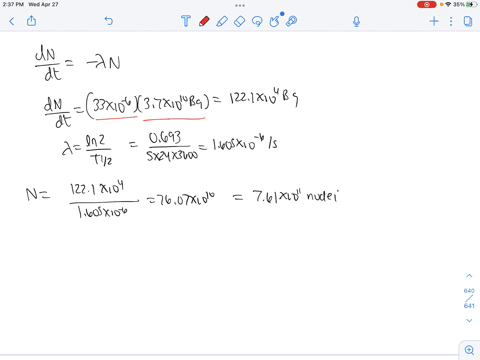 2:37 PM Wed Apr 27 35%
dN/dt = -λN
dN/dt = (33×10⁻⁶)(3.7×10¹⁰Bq) = 122.1×10⁴Bq
λ = ln2/T1/2 = 0.693/5×24×3600 = 1.605×10⁻⁶/s
N = 122.1×10⁴/1.605×10⁻⁶ = 76.07×10¹⁰ = 7.61×10¹¹ nuclei
640
641